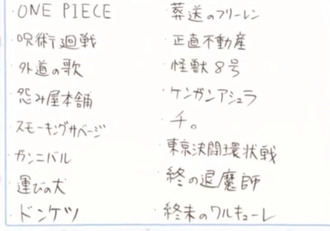 ・ONE PIECE
・呪術廻戦
・外道の歌
・怨み屋本舗
・スモーキングサベージ
・ガンニバル
・運びの犬
・ドンケツ
・葬送のフリーレン
・正直不動産
・怪獣8号
・ケンガンアシュラ
・チ。
・東京決闘環状戦
・終の退魔師
・終末のワルキューレ